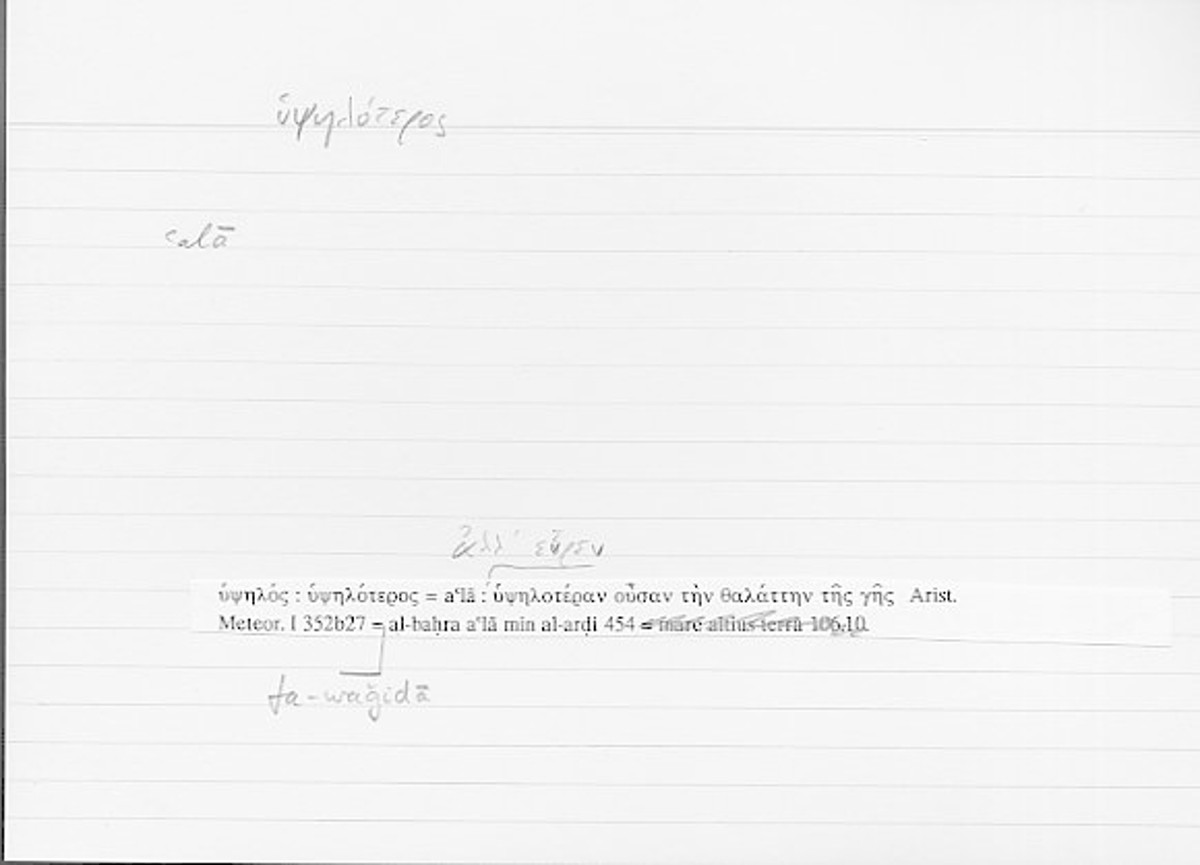 ὑψηλότερος
ʿalā
ἀλλ' εὗρεν
ὑψηλός : ὑψηλότερος = aʿlā : ὑψηλοτέραν οὖσαν τὴν θαλάττην τῆς γῆς Arist.
Meteor. I 352b27 = al-baḥra aʿlā min al-arḍi 454 = mare altius terra 106,10.
fa-waǧidā